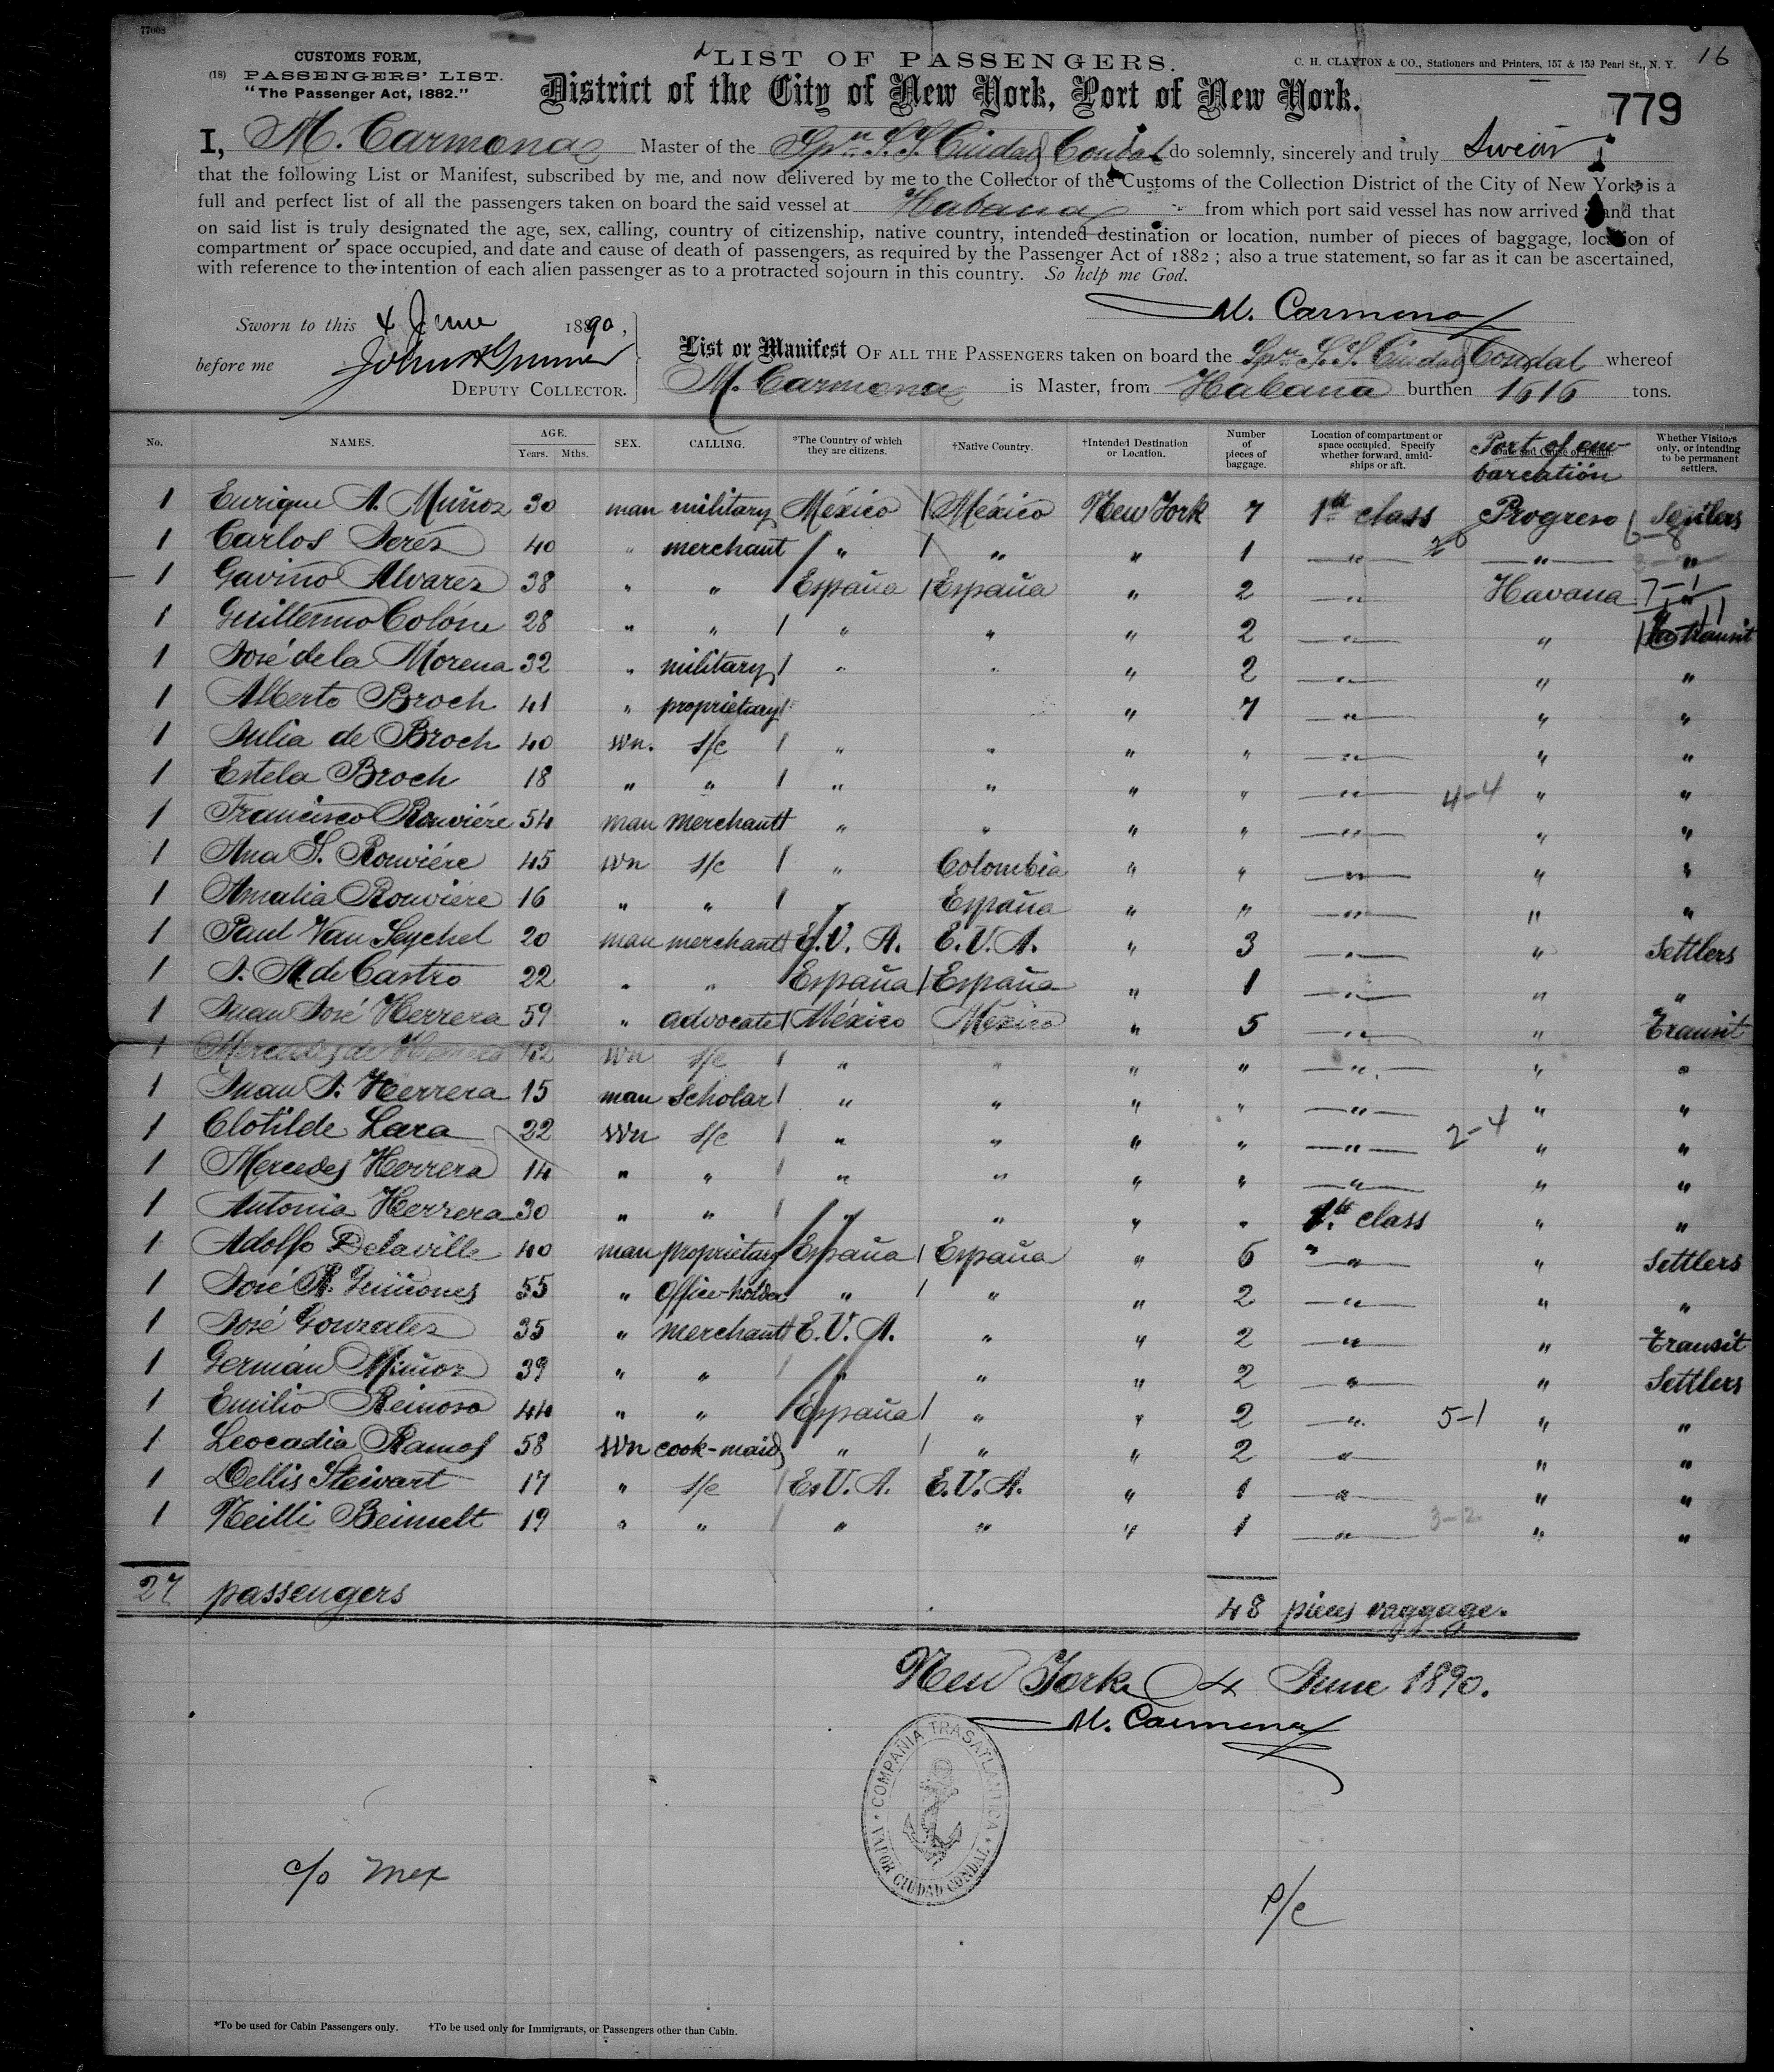 77008
16
CUSTOMS FORM,
(18) PASSENGERS' LIST.
"The Passenger Act, 1882."
LIST OF PASSENGERS.
C. H. CLAYTON & CO., Stationers and Printers, 157 & 159 Pearl St., N. Y.
District of the City of New York, Port of New York.
779
I, M. Carmona Master of the Spn. S.S. Ciudad Condal do solemnly, sincerely and truly Swear
that the following List or Manifest, subscribed by me, and now delivered by me to the Collector of the Customs of the Collection District of the City of New York, is a
full and perfect list of all the passengers taken on board the said vessel at Habana from which port said vessel has now arrived; and that
on said list is truly designated the age, sex, calling, country of citizenship, native country, intended destination or location, number of pieces of baggage, location of
compartment or space occupied, and date and cause of death of passengers, as required by the Passenger Act of 1882; also a true statement, so far as it can be ascertained,
with reference to the intention of each alien passenger as to a protracted sojourn in this country. So help me God.
M. Carmona
Sworn to this 4 June 1890,
before me
DEPUTY COLLECTOR.
List or Manifest OF ALL THE PASSENGERS taken on board the Spn. S.S. Ciudad Condal whereof
M. Carmona is Master, from Habana burthen 1616 tons.
No. NAMES. AGE. Years. Mths. SEX. CALLING. *The Country of which they are citizens. †Native Country. †Intended Destination or Location. Number of pieces of baggage. Location of compartment or space occupied. Specify whether forward, amidships or aft. Date and Cause of Death. Port of embarcatión Whether Visitors only, or intending to be permanent settlers.
1 Enrique A. Muñoz 30 man military México México New York 7 1st class Progreso Settlers
1 Carlos 40 " merchant " " " 1 " " "
1 Gavino Alvarez 38 " " España España " 2 " Havana "
1 Guillermo Colón 28 " " " " " 2 " " transit
1 José de la Morena 32 " military " " " 2 " " "
1 Alberto Broch 41 " proprietary " 7 " " "
1 Julia de Broch 40 wn. s/c " " " " " " "
1 Estela Broch 18 " " " " " " " 4-4 " "
1 Francisco Rouviére 54 man merchant " " " " " " "
1 Ana S. Rouviére 45 wn s/c " Colombia " " " " "
1 Amalia Rouviére 16 " " " España " " " " "
1 Paul Van Seychel 20 man merchant E.U.A. E.U.A. " 3 " " Settlers
1 J. A. de Castro 22 " " España España " 1 " " "
1 Juan José Herrera 59 " advocate México México " 5 " " Transit
1 Mercedes de Herrera 42 wn s/c " " " " " " "
1 Juan J. Herrera 15 man scholar " " " " " " "
1 Clotilde Lara 22 wn s/c " " " " " 2-4 " "
1 Mercedes Herrera 14 " " " " " " " " "
1 Antonia Herrera 30 " " " " " " 1st class " "
1 Adolfo Delaville 40 man proprietary España España " 6 " " " Settlers
1 José R. Quiñones 55 " office-holder " " " 2 " " "
1 José Gonzalez 35 " merchant E.U.A. " " 2 " " Transit
1 Germán Muñoz 39 " " " " " 2 " " Settlers
1 Emilio Reinoso 44 " " España " " 2 " 5-1 " "
1 Leocadia Ramos 58 wn cook-maid " " " 2 " " "
1 Dellis Steivart 17 " s/c E.U.A. E.U.A. " 1 " " "
1 Neilli Beimelt 19 " " " " " 1 " 3-2 " "
27 passengers 48 pieces vaggage.
New York 4 June 1890.
M. Carmona
COMPAÑIA TRASATLANTICA
VAPOR CIUDAD CONDAL
c/o Mex
P/c
*To be used for Cabin Passengers only. †To be used only for Immigrants, or Passengers other than Cabin.